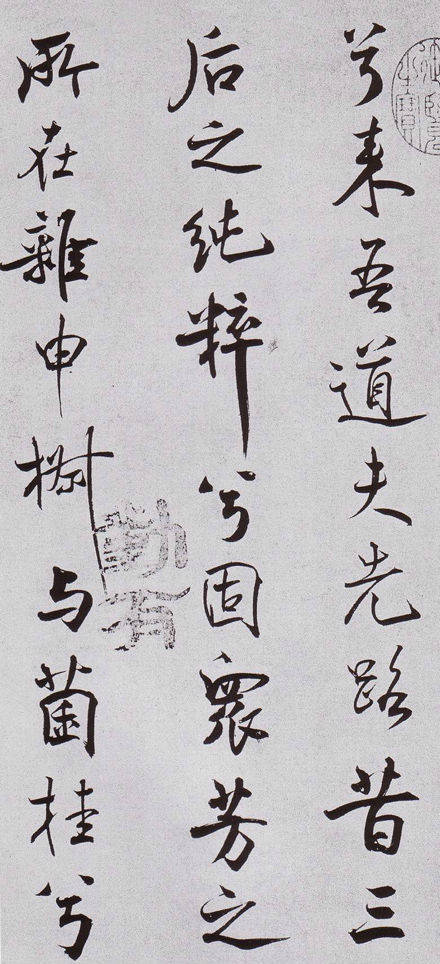 兮来吾道夫先路昔三
后之纯粹兮固众芳之
所在雜申椒与菌桂兮